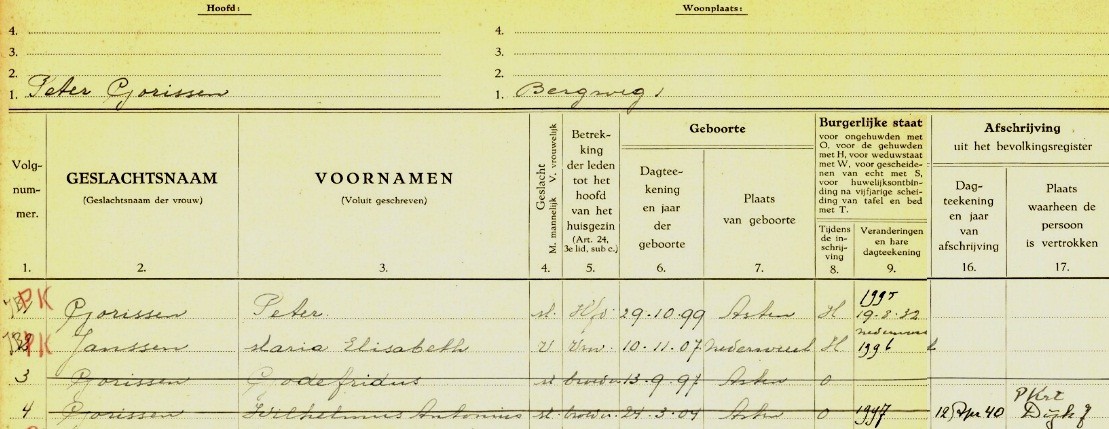 Hoofd: Woonplaats:
4. 4.
3. 3.
2. 2.
1. Peter Gorissen 1. Bergweg 1
Volg-
num-
mer.
GESLACHTSNAAM
(Geslachtsnaam der vrouw)
VOORNAMEN
(Voluit geschreven)
Geslacht
M. mannelijk V. vrouwelijk
Betrek-
king
der leden
tot het
hoofd
van het
huisgezin
(Art. 24,
3e lid, sub c.)
Geboorte
Dagtee-
kening
en jaar
der
geboorte
Plaats
van geboorte
Burgerlijke staat
voor ongehuwden met
O, voor de gehuwden
met H, voor weduwstaat
met W, voor gescheide-
nen van echt met S,
voor huwelijksontbin-
ding na vijfjarige schei-
ding van tafel en bed
met T.
Tijdens
de in-
schrij-
ving
Veranderingen
en hare
dagteekening
Afschrijving
uit het bevolkingsregister
Dag-
teekening
en jaar
van
afschrijving
Plaats
waarheen de
persoon
is vertrokken
1. 2. 3. 4. 5. 6. 7. 8. 9. 16. 17.
PK Gorissen Peter M. Hfd. 29.10.99 Asten H 1995 19-8-32
PK Janssen Maria Elisabeth V Vrw. 10.11.07 Nederweert H Nederweert 1996
3 Gorissen Godefridus M broeder 13.9.97 Asten O
4 Gorissen Wilhelmus Antonius M. broeder 24.3.04 Asten O 1947 12 Apr 40 PKrt Dijk 7